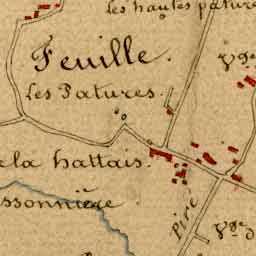 les hautes patures
Feuille.
Les Patures.
de la hattais.
ssonnière.
Pire